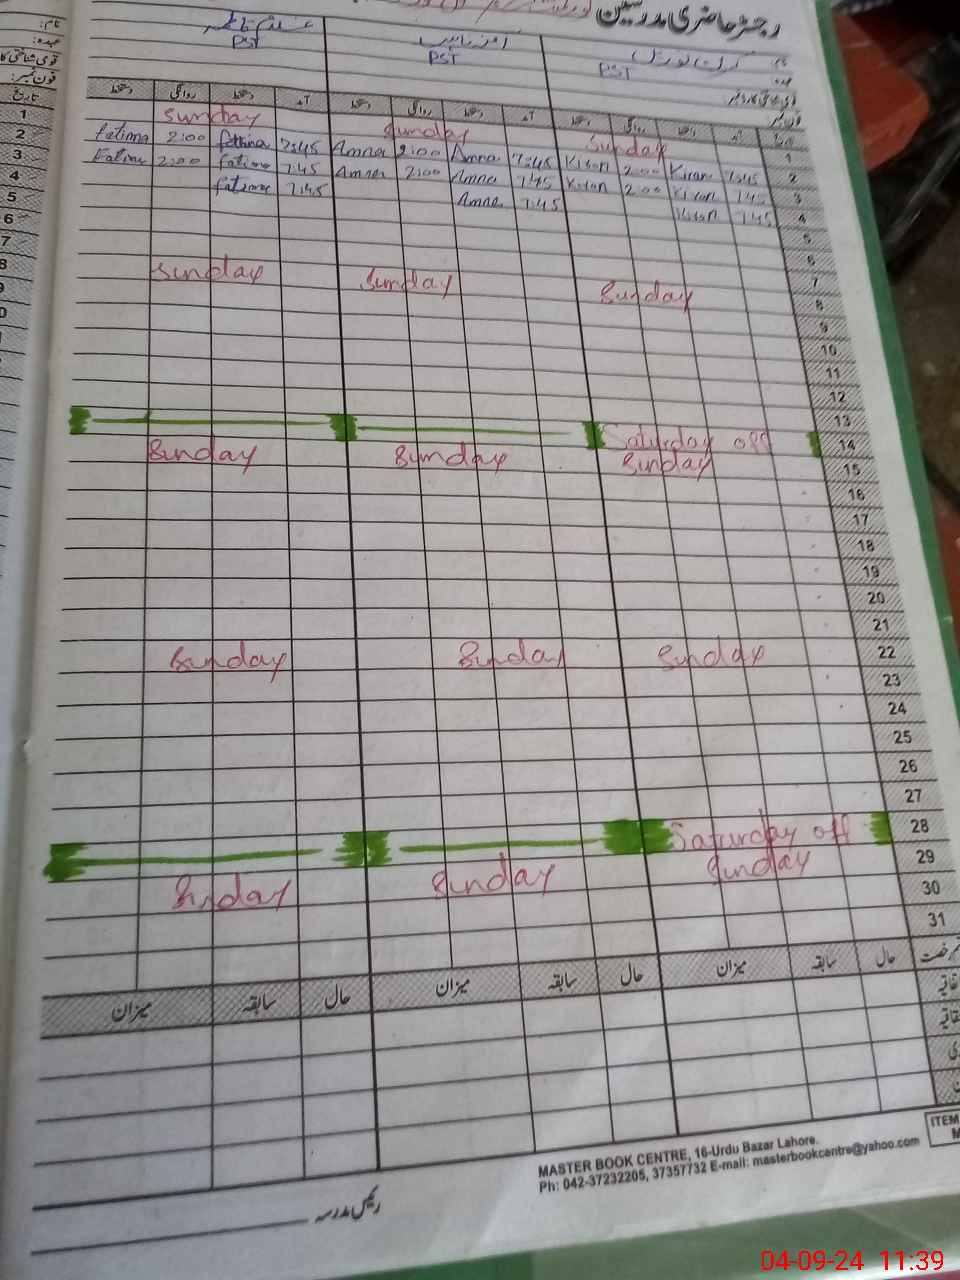 رجسٹر حاضری مدرسین
PST
PST
PST
نام:
عہدہ:
قومی شناختی کا
فون نمبر:
تاریخ
دستخط روانگی دستخط آمد دستخط روانگی دستخط آمد دستخط روانگی دستخط آمد
Sunday Sunday Sunday 1
Fatima 2:00 Fathima 7:45 Amna 2:00 Amna 7:45 Kiran 2:00 Kiran 7:45 2
Fatima 2:00 Fatima 7:45 Amna 2:00 Amna 7:45 Kiran 2:00 Kiran 7:45 3
Fatima 7:45 Amna 7:45 Kiran 7:45 4
5
6
7
Sunday Sunday Sunday 8
9
10
11
12
13
Saturday off 14
Sunday Sunday Sunday 15
16
17
18
19
20
21
Sunday Sunday Sunday 22
23
24
25
26
27
Saturday off 28
Sunday Sunday Sunday 29
30
31
حال سابقہ میزان حال سابقہ میزان حال سابقہ میزان
MASTER BOOK CENTRE, 16-Urdu Bazar Lahore.
Ph: 042-37232205, 37357732 E-mail: masterbookcentre@yahoo.com
ITEM
رئیس مدرسہ
04-09-24 11:39